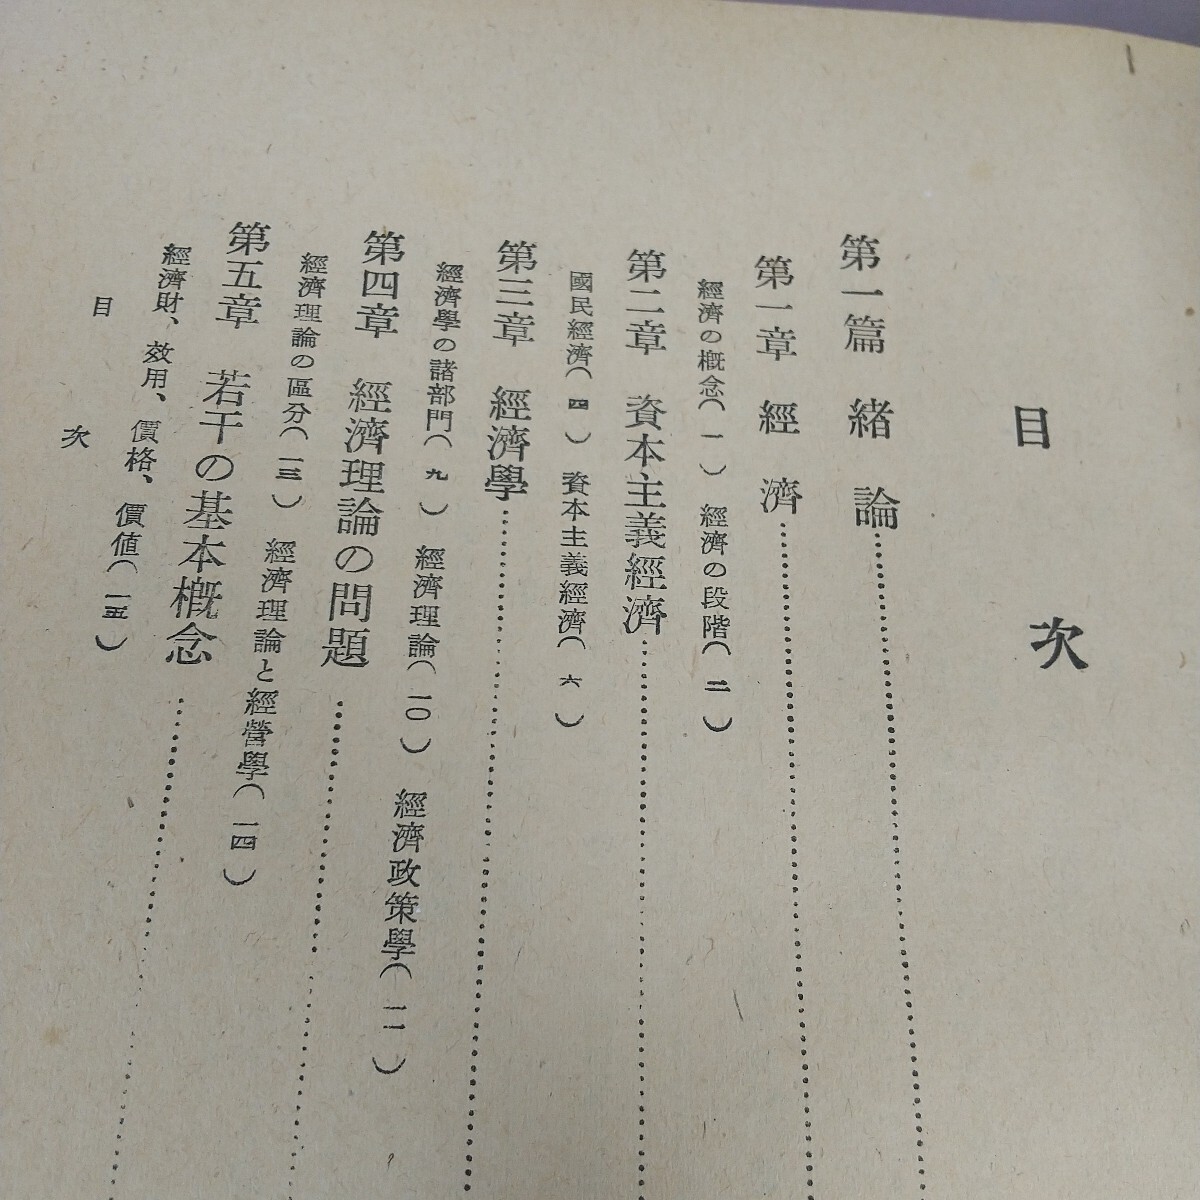 目次
第一篇 緒論
第一章 經濟
經濟の概念(一) 經濟の段階(二)
第二章 資本主義經濟
國民經濟(四) 資本主義經濟(六)
第三章 經濟學
經濟學の諸部門(九) 經濟理論(一〇) 經濟政策學(一一)
第四章 經濟理論の問題
經濟理論の區分(一三) 經濟理論と經營學(一四)
第五章 若干の基本概念
經濟財、效用、價格、價値(一五)
目次